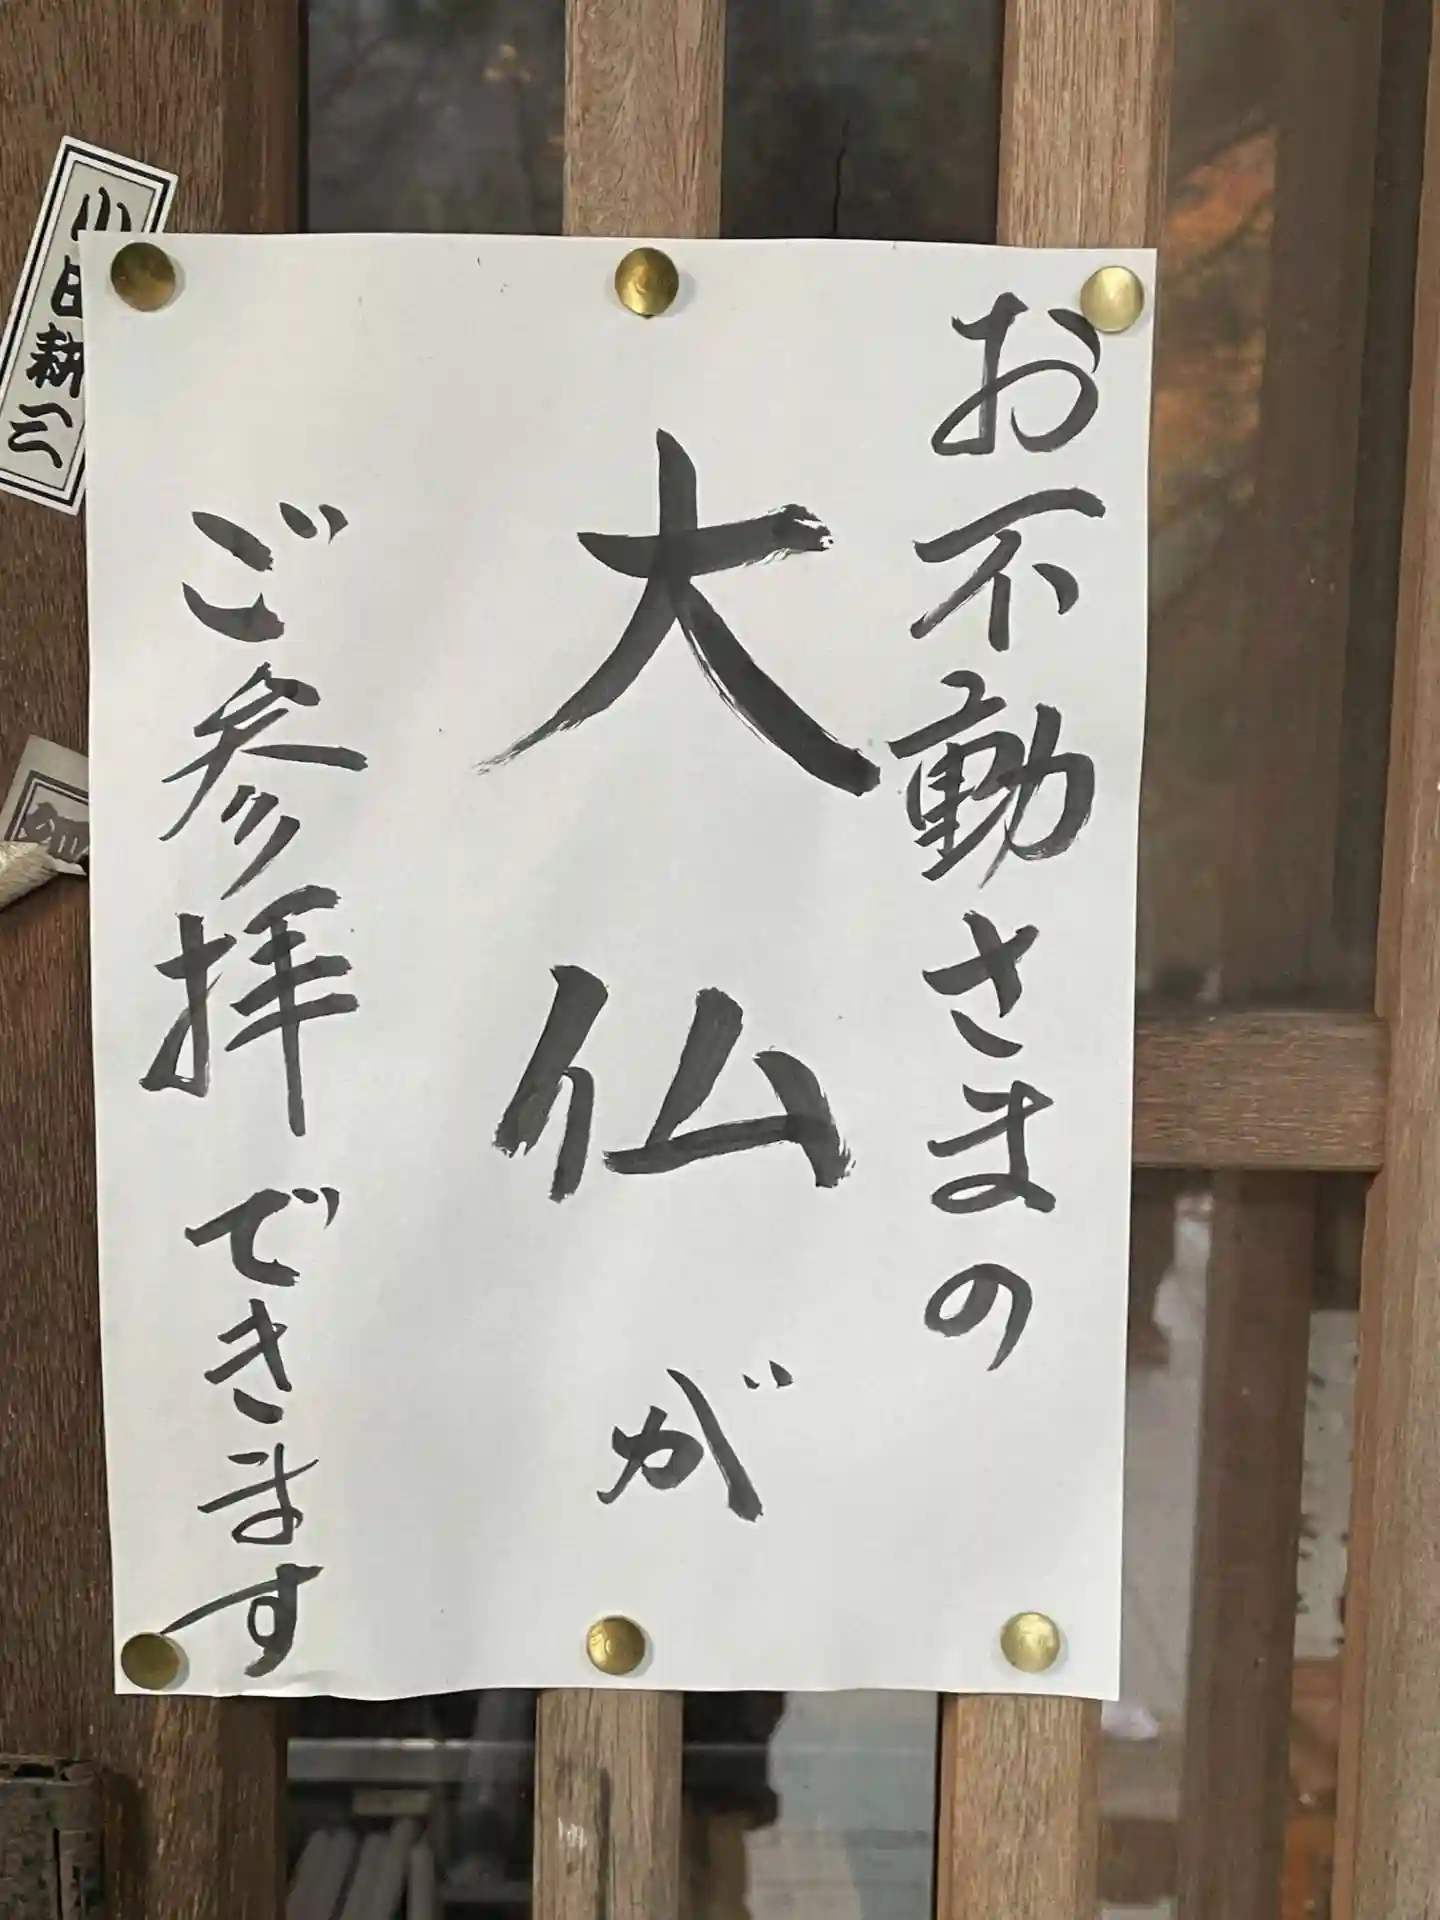 お不動さまの
大仏が
ご参拝できます